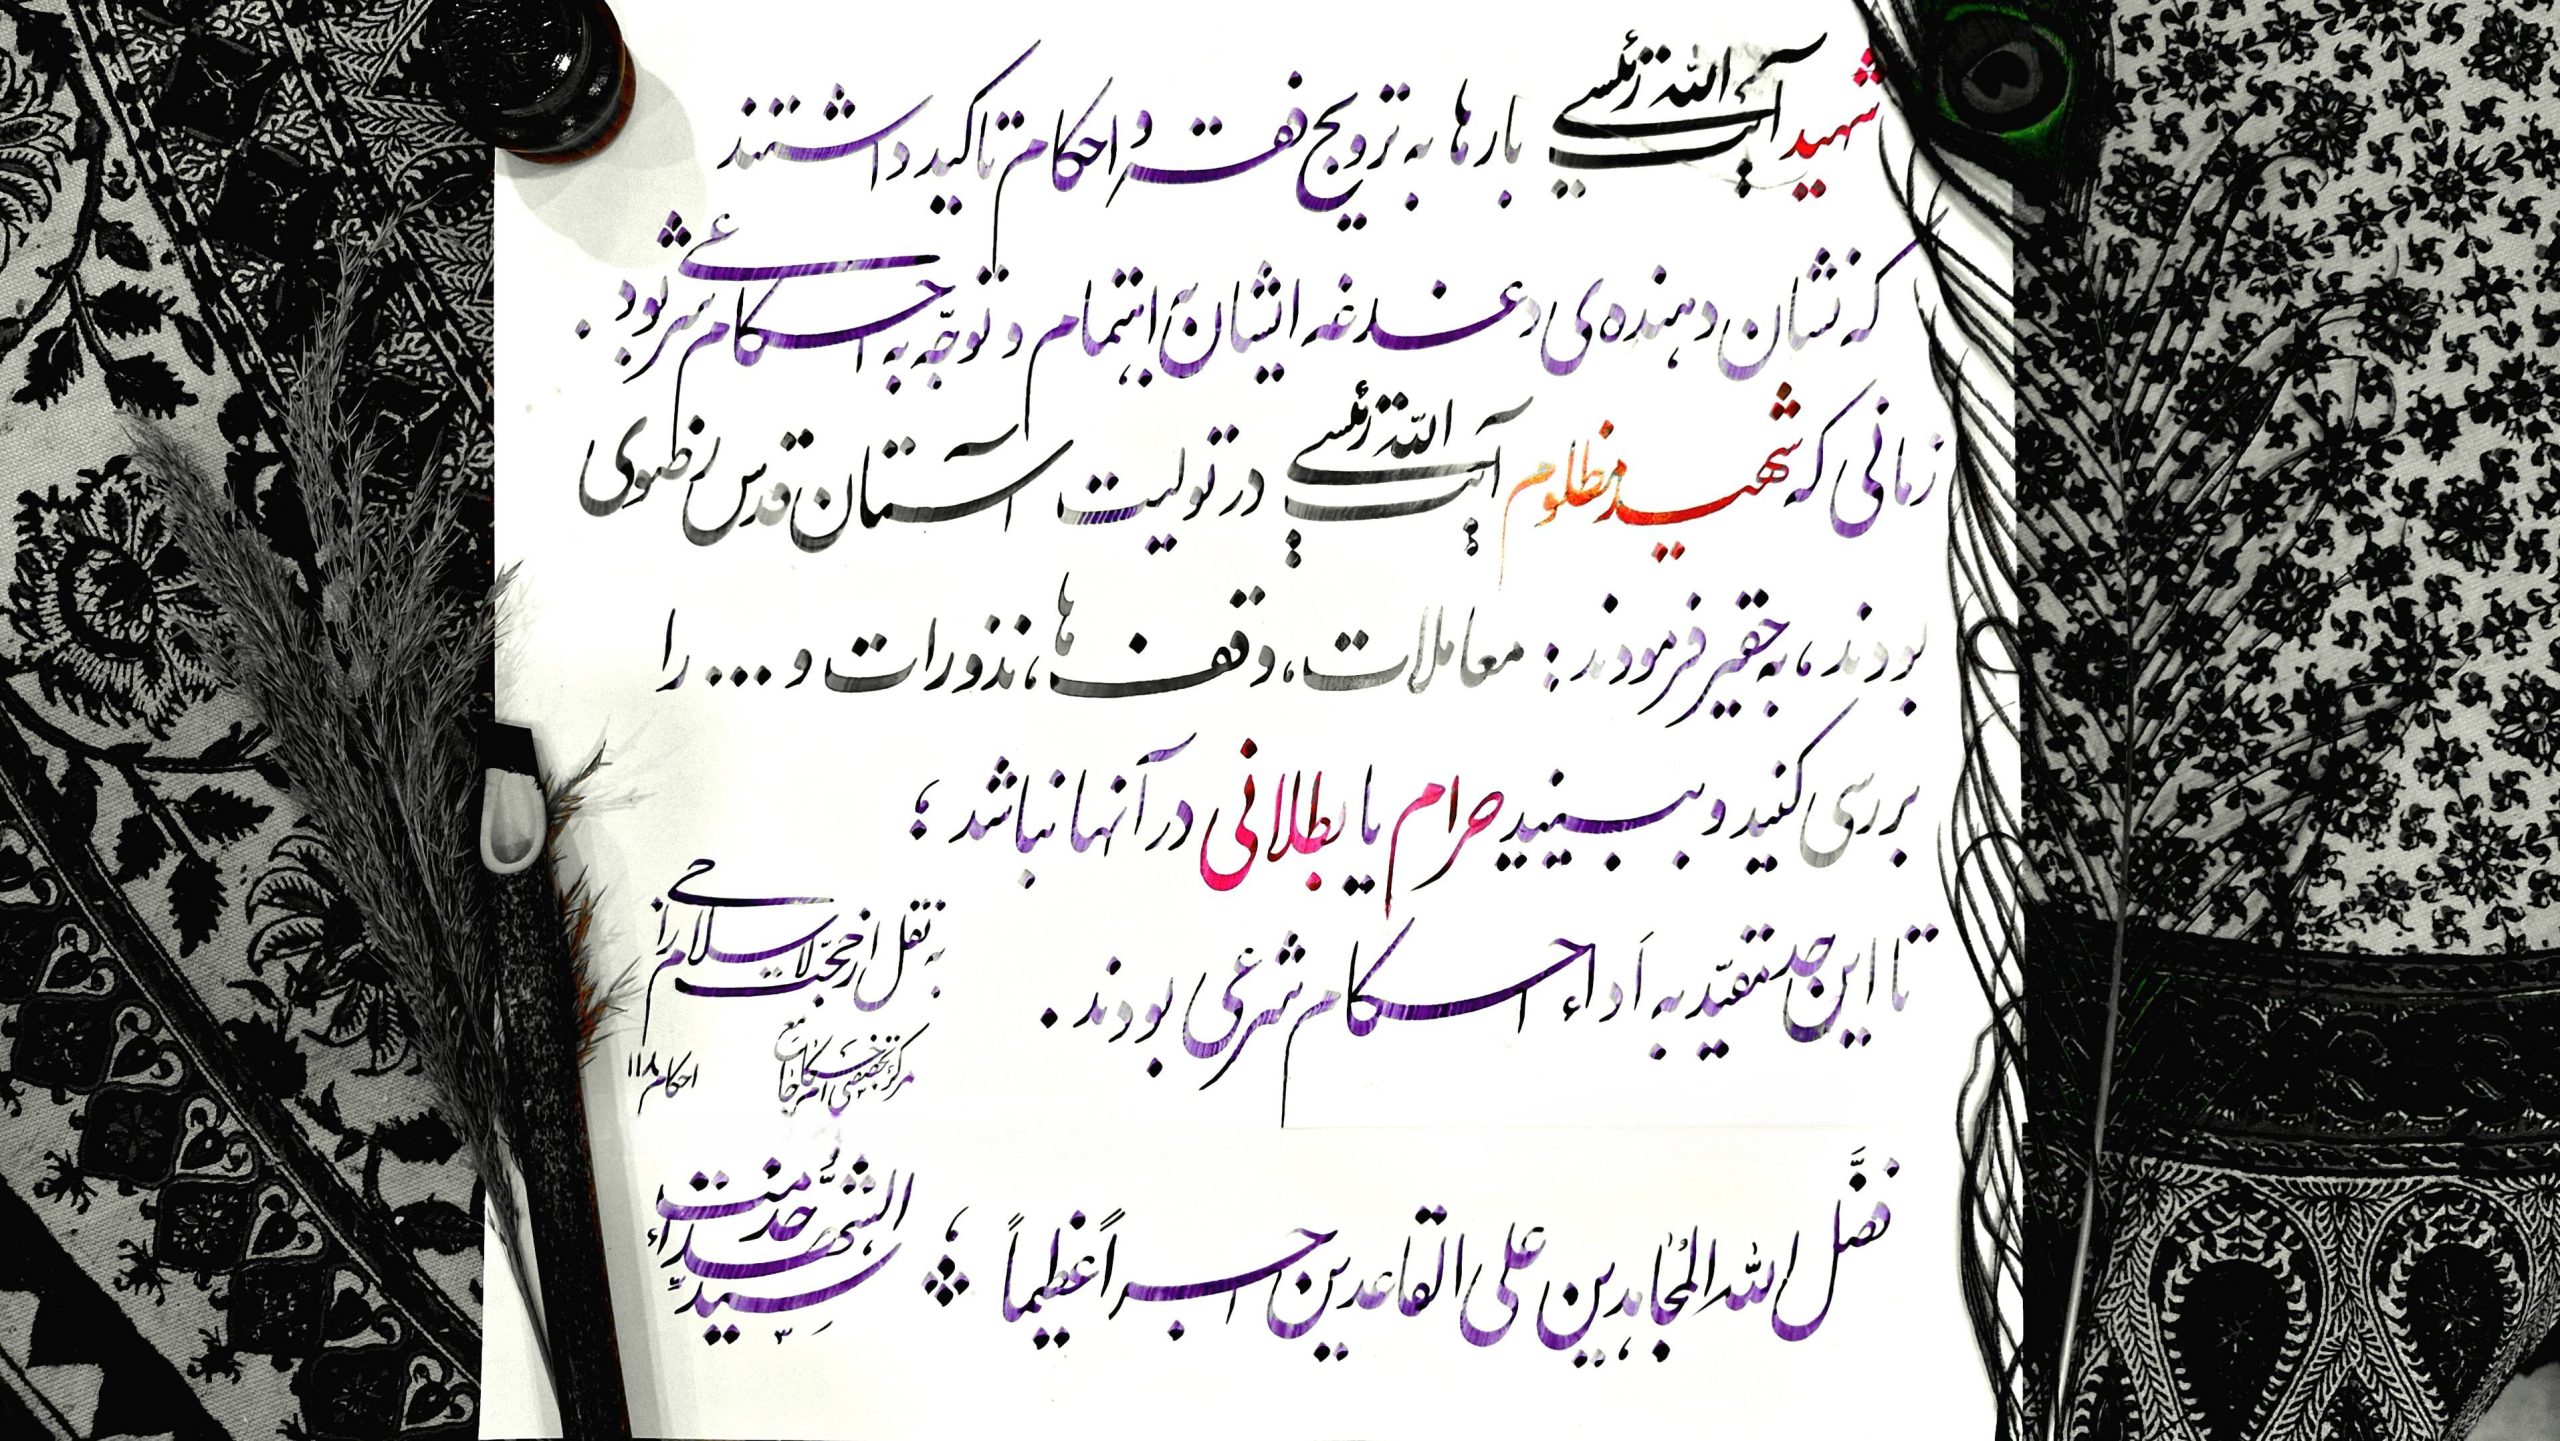 شهید آیت الله رئیسی بارها به ترویج فقه و احکام تاکید داشتند
که نشان دهنده‌ی دغدغه ایشان به اهتمام و توجّه به احکام شرعی بود.
زمانی که شهید مظلوم آیت اللّه رئیسی در تولیت آستان قدس رضوی
بودند، به حقیر فرمودند: معاملات، وقف‌ها، نذورات و... را
بررسی کنید و ببینید حرام یا بطلانی در آنها نباشد؛
تا این حد مقیّد به اَداء احکام شرعی بودند.
به نقل از حجّت الاسلام راجی
مرکز تخصصی احکام جامع
احکام ۱۱۸
فضَّل الله المُجاهدین علی القاعدین اجراً عظیماً؛
خدمت سیّد الشُّهداء